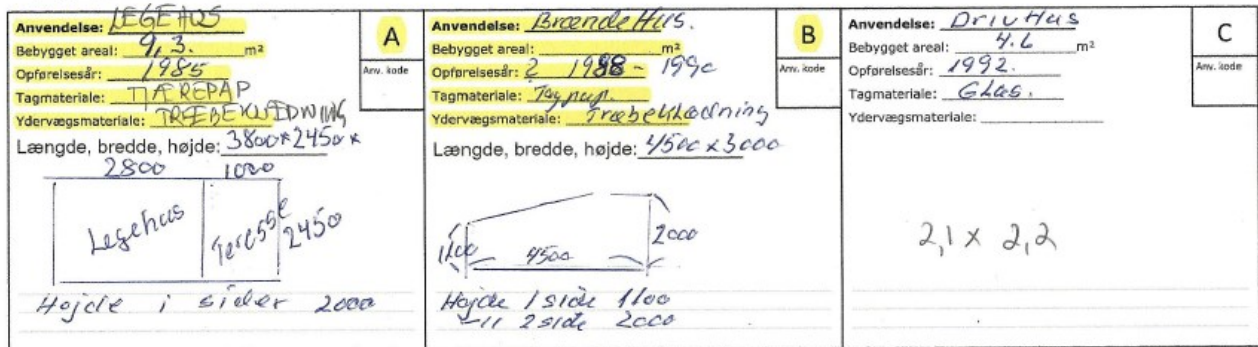 Anvendelse: LEGEHUS
A
Bebygget areal: 9,3. m²
Opførelsesår: 1985
Anv. kode
Tagmateriale: TJÆREPAP
Ydervægsmateriale: TRÆBEKLÆDNING
Længde, bredde, højde: 3800*2450*
2800 1000
Legehus
Teresse
2450
Højde i sider 2000
Anvendelse: BrændeHus.
B
Bebygget areal: m²
Opførelsesår: ? 1988 - 1990
Anv. kode
Tagmateriale: Tagpap.
Ydervægsmateriale: Træbeklædning
Længde, bredde, højde: 4500 x 3000
4500
2000
Højde 1 side 1100
-11 2 side 2000
Anvendelse: DrivHus
C
Bebygget areal: 4.6 m²
Opførelsesår: 1992.
Anv. kode
Tagmateriale: Glas.
Ydervægsmateriale:
2,1 x 2,2